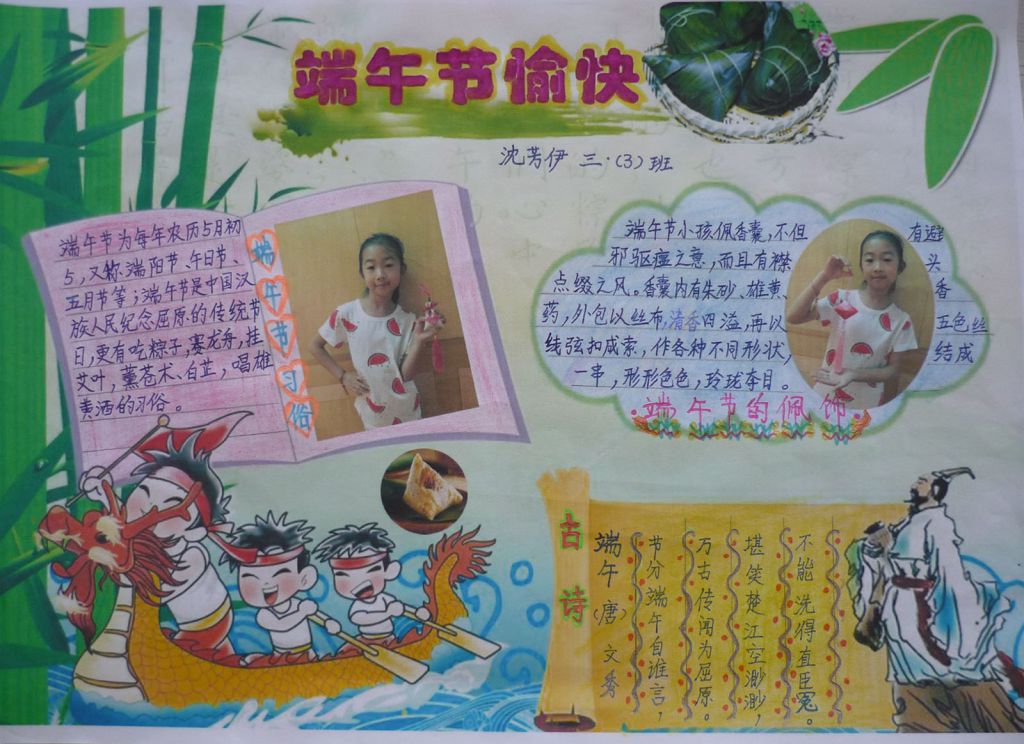 端午节愉快
沈芳伊 三·(3)班
端午节为每年农历5月初
5,又称端阳节、午日节、
五月节等;端午节是中国汉
族人民纪念屈原的传统节
日,更有吃粽子,赛龙舟,挂
艾叶,薰苍术、白芷,唱雄
黄酒的习俗。
端午节习俗
端午节小孩佩香囊,不但有避
邪驱瘟之意,而且有襟头
点缀之风。香囊内有朱砂、雄黄、香
药,外包以丝布,清香四溢,再以五色丝
线弦扣成索,作各种不同形状,结成
一串,形形色色,玲珑夺目。
·端午节的佩饰·
古诗
端午(唐)文秀
节分端午自谁言,
万古传闻为屈原。
堪笑楚江空渺渺,
不能洗得直臣冤。